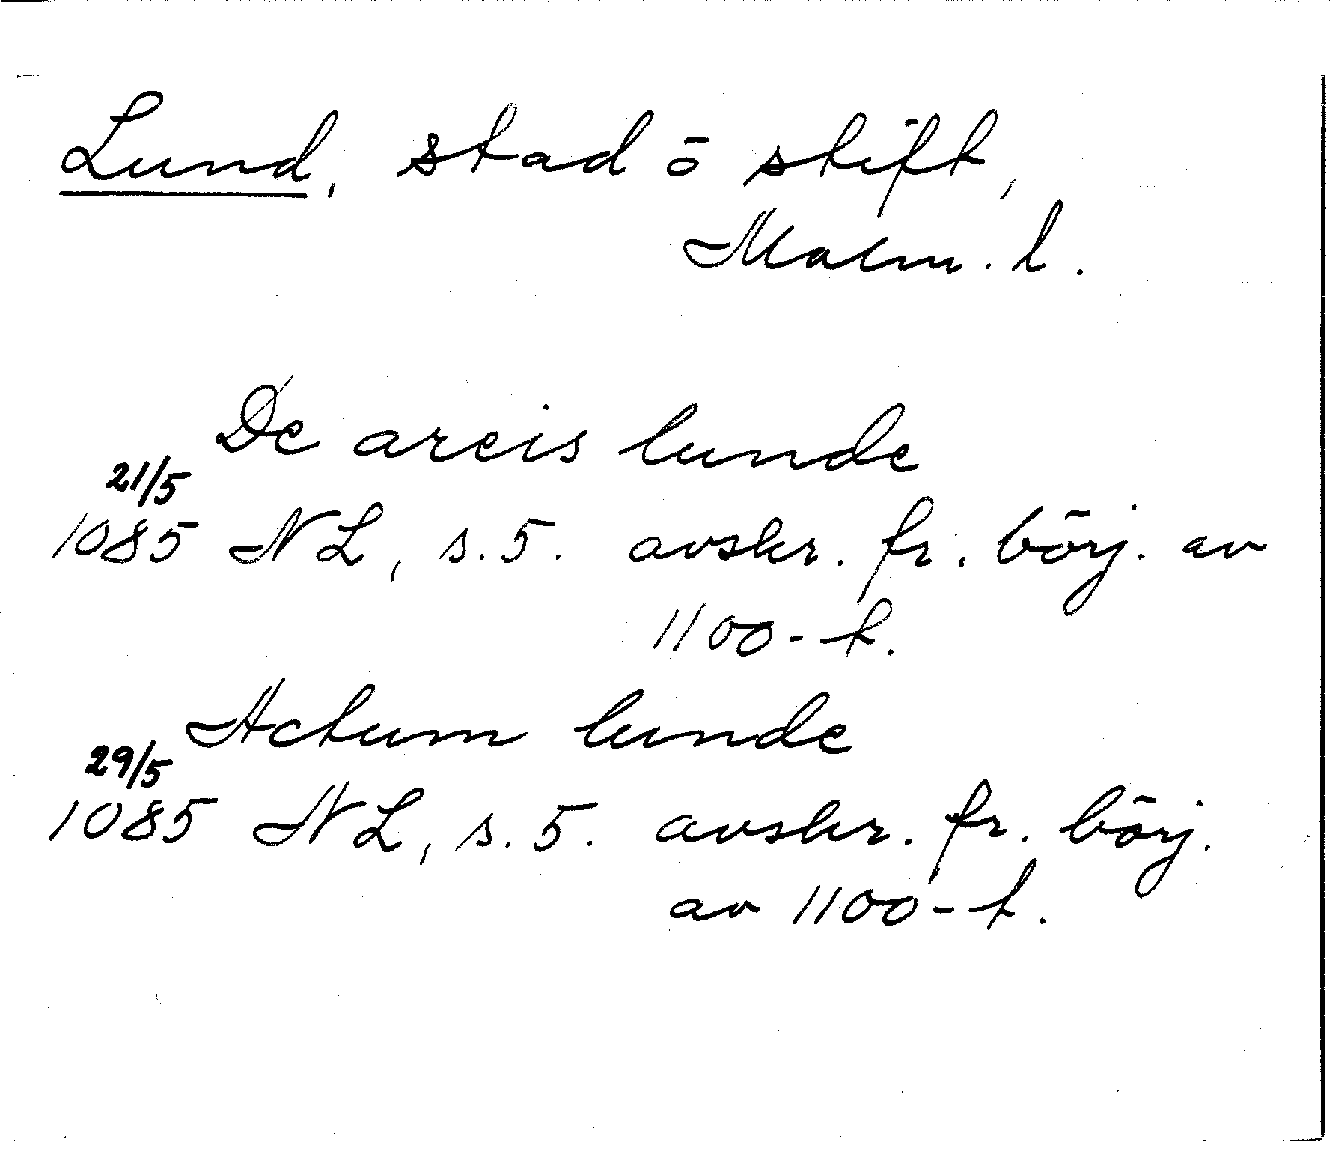 Lund, stad ō stift,
Malm. l.
De areis lunde
21/5
1085 NL, s. 5. avskr. fr. börj. av
1100-t.
Actum lunde
29/5
1085 NL, s. 5. avskr. fr. börj.
av 1100-t.